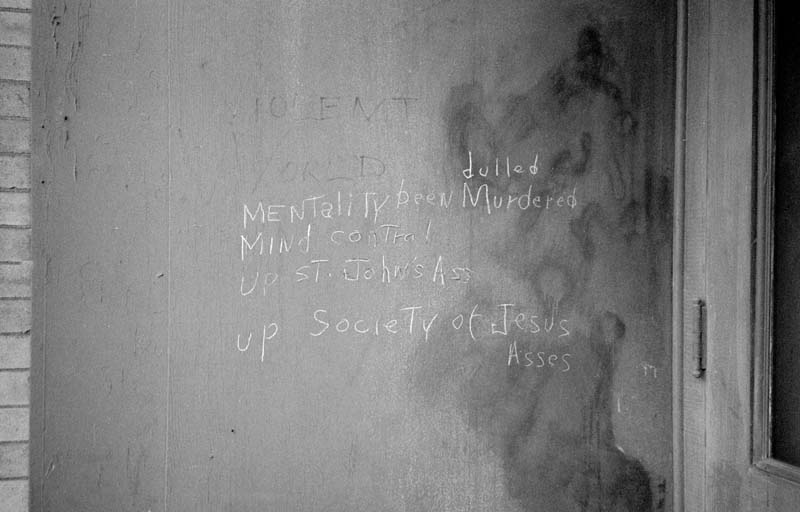 VIOLENT
WORLD
dulled
MENTaliTy been Murdered
MINd contral
Up ST. John's Ass
up SocieTy of Jesus
Asses